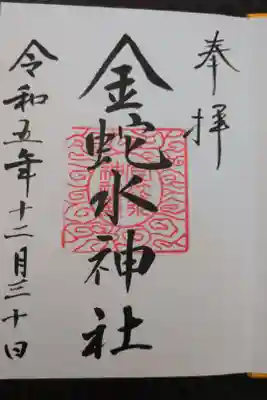 奉拝
金蛇水神社
令和五年十二月三十日